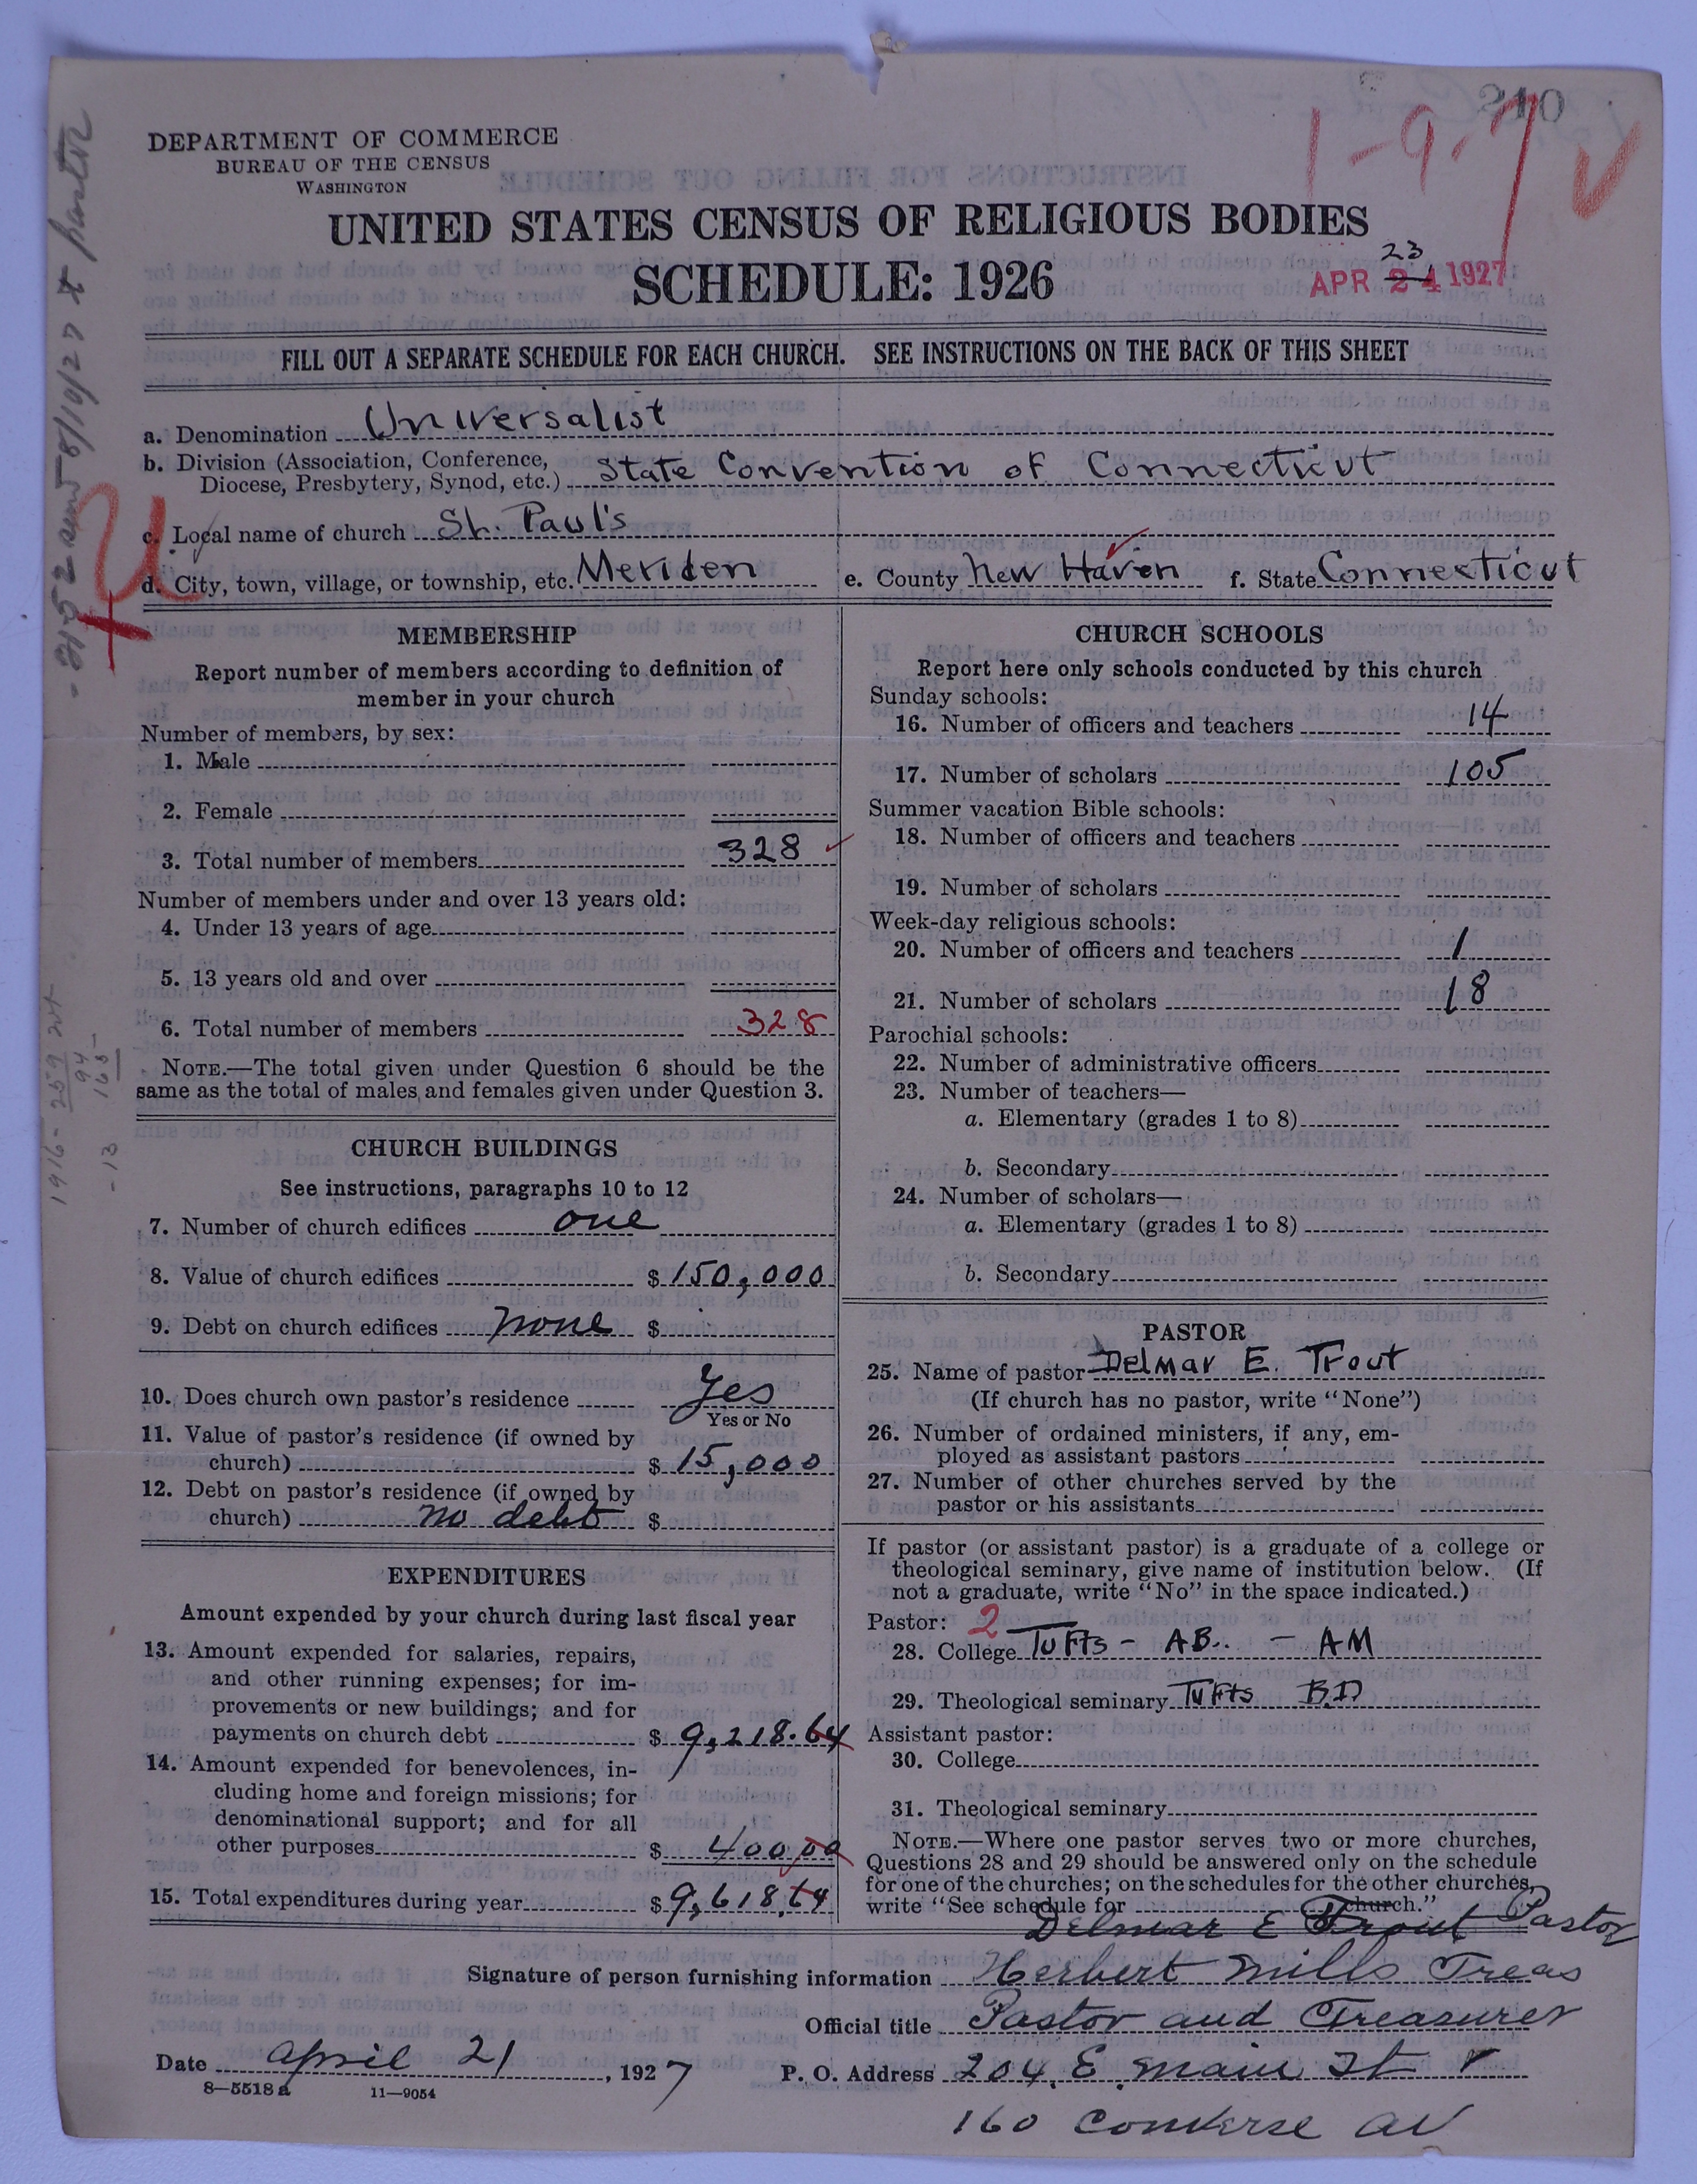 210
1-9-7
DEPARTMENT OF COMMERCE
BUREAU OF THE CENSUS
WASHINGTON
UNITED STATES CENSUS OF RELIGIOUS BODIES
SCHEDULE: 1926
23
APR 24 1927
FILL OUT A SEPARATE SCHEDULE FOR EACH CHURCH. SEE INSTRUCTIONS ON THE BACK OF THIS SHEET
a. Denomination Universalist
b. Division (Association, Conference, Diocese, Presbytery, Synod, etc.) State Convention of Connecticut
c. Local name of church St. Paul's
d. City, town, village, or township, etc. Meriden e. County New Haven f. State Connecticut
MEMBERSHIP
Report number of members according to definition of
member in your church
Number of members, by sex:
1. Male
2. Female
3. Total number of members 328
Number of members under and over 13 years old:
4. Under 13 years of age
5. 13 years old and over
6. Total number of members 328
NOTE.—The total given under Question 6 should be the
same as the total of males and females given under Question 3.
CHURCH BUILDINGS
See instructions, paragraphs 10 to 12
7. Number of church edifices one
8. Value of church edifices $ 150,000
9. Debt on church edifices none $
10. Does church own pastor's residence Yes
Yes or No
11. Value of pastor's residence (if owned by
church) $ 15,000
12. Debt on pastor's residence (if owned by
church) no debt $
EXPENDITURES
Amount expended by your church during last fiscal year
13. Amount expended for salaries, repairs,
and other running expenses; for im-
provements or new buildings; and for
payments on church debt $ 9,218.64
14. Amount expended for benevolences, in-
cluding home and foreign missions; for
denominational support; and for all
other purposes $ 400.00
15. Total expenditures during year $ 9,618.64
CHURCH SCHOOLS
Report here only schools conducted by this church
Sunday schools:
16. Number of officers and teachers 14
17. Number of scholars 105
Summer vacation Bible schools:
18. Number of officers and teachers
19. Number of scholars
Week-day religious schools:
20. Number of officers and teachers 1
21. Number of scholars 18
Parochial schools:
22. Number of administrative officers
23. Number of teachers—
a. Elementary (grades 1 to 8)
b. Secondary
24. Number of scholars—
a. Elementary (grades 1 to 8)
b. Secondary
PASTOR
25. Name of pastor Delmar E. Trout
(If church has no pastor, write "None")
26. Number of ordained ministers, if any, em-
ployed as assistant pastors
27. Number of other churches served by the
pastor or his assistants
If pastor (or assistant pastor) is a graduate of a college or
theological seminary, give name of institution below. (If
not a graduate, write "No" in the space indicated.)
Pastor: 2
28. College Tufts - AB. - AM
29. Theological seminary Tufts B.D
Assistant pastor:
30. College
31. Theological seminary
NOTE.—Where one pastor serves two or more churches,
Questions 28 and 29 should be answered only on the schedule
for one of the churches; on the schedules for the other churches,
write "See schedule for church."
Delmar E Trout Pastor
Signature of person furnishing information Herbert Mills Treas
Official title Pastor and Treasurer
Date April 21, 1927 P. O. Address 204 E. Main St
8—5518a 11—9054
160 Converse Av